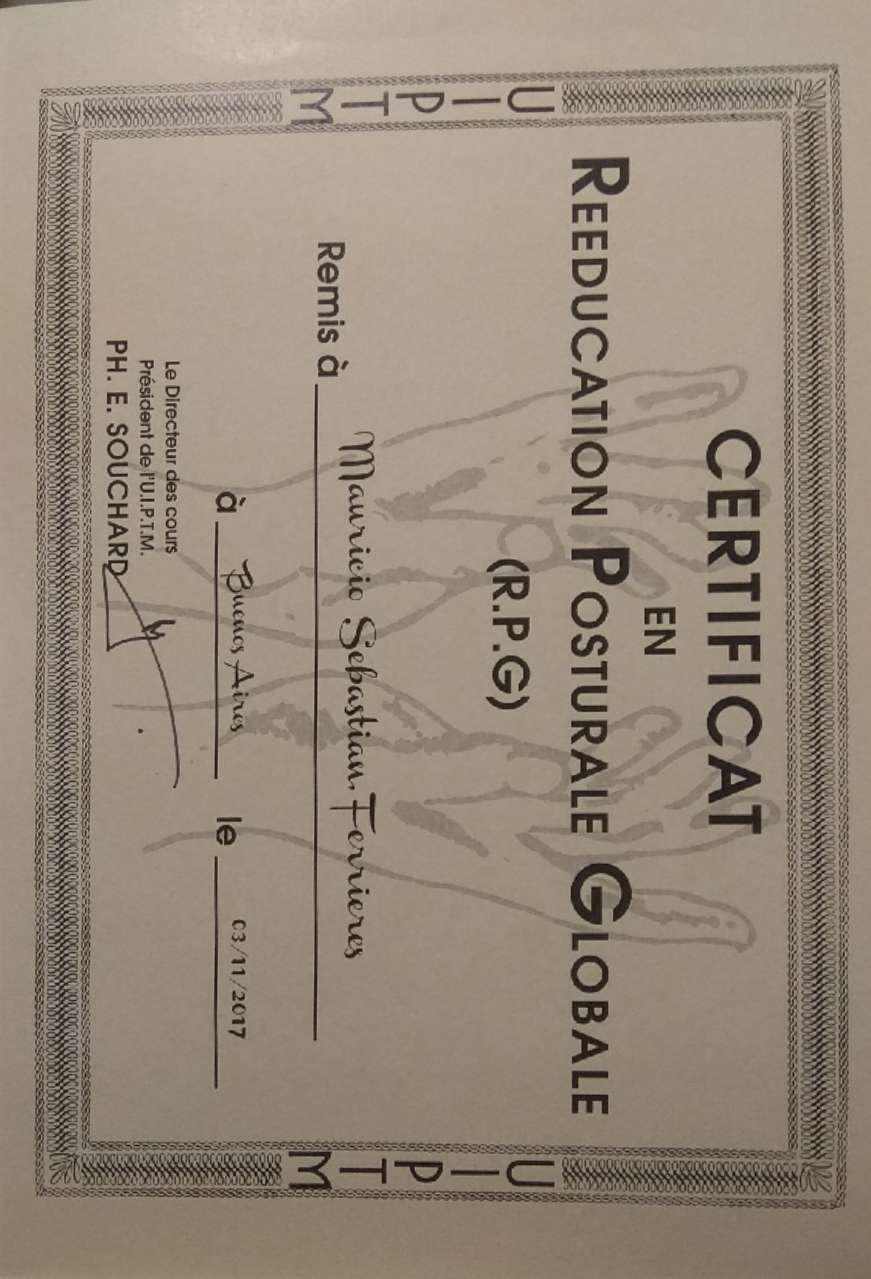 CERTIFICAT
EN
REEDUCATION POSTURALE GLOBALE
(R.P.G)
UIPTM
UIPTM
Remis à Mauricio Sebastian Ferrieres
à Buenos Aires le 03/11/2017
Le Directeur des cours
Président de l'U.I.P.T.M.
PH. E. SOUCHARD